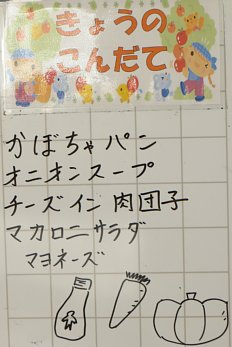 きょうの
こんだて
かぼちゃパン
オニオンスープ
チーズイン肉団子
マカロニサラダ
マヨネーズ